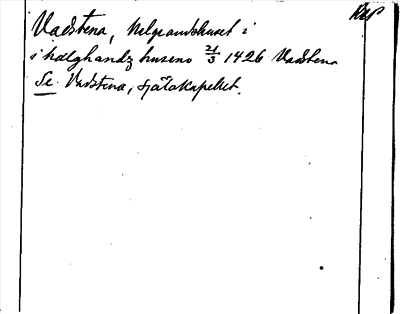 Vadstena, Helgeandshuset i
i hælghandz huseno 21/3 1426 Vadstena
Se Vadstena, själakapellet.